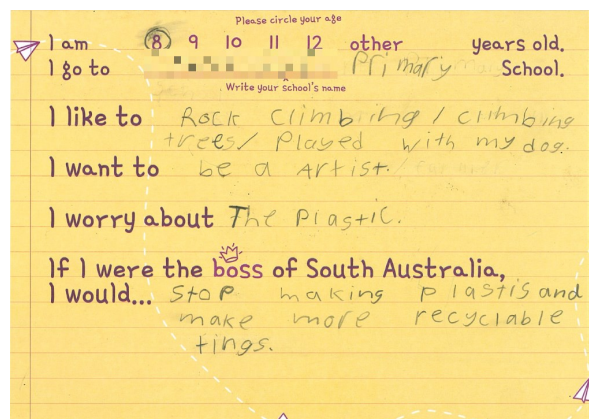 Please circle your age
I am 8 9 10 11 12 other years old.
I go to Primary School.
Write your school's name
I like to Rock Climbing / climbing
trees/ Played with my dog.
I want to be a Artist.
I worry about The Plastic.
If I were the boss of South Australia,
I would... Stop making plastis and
make more recyclable
tings.